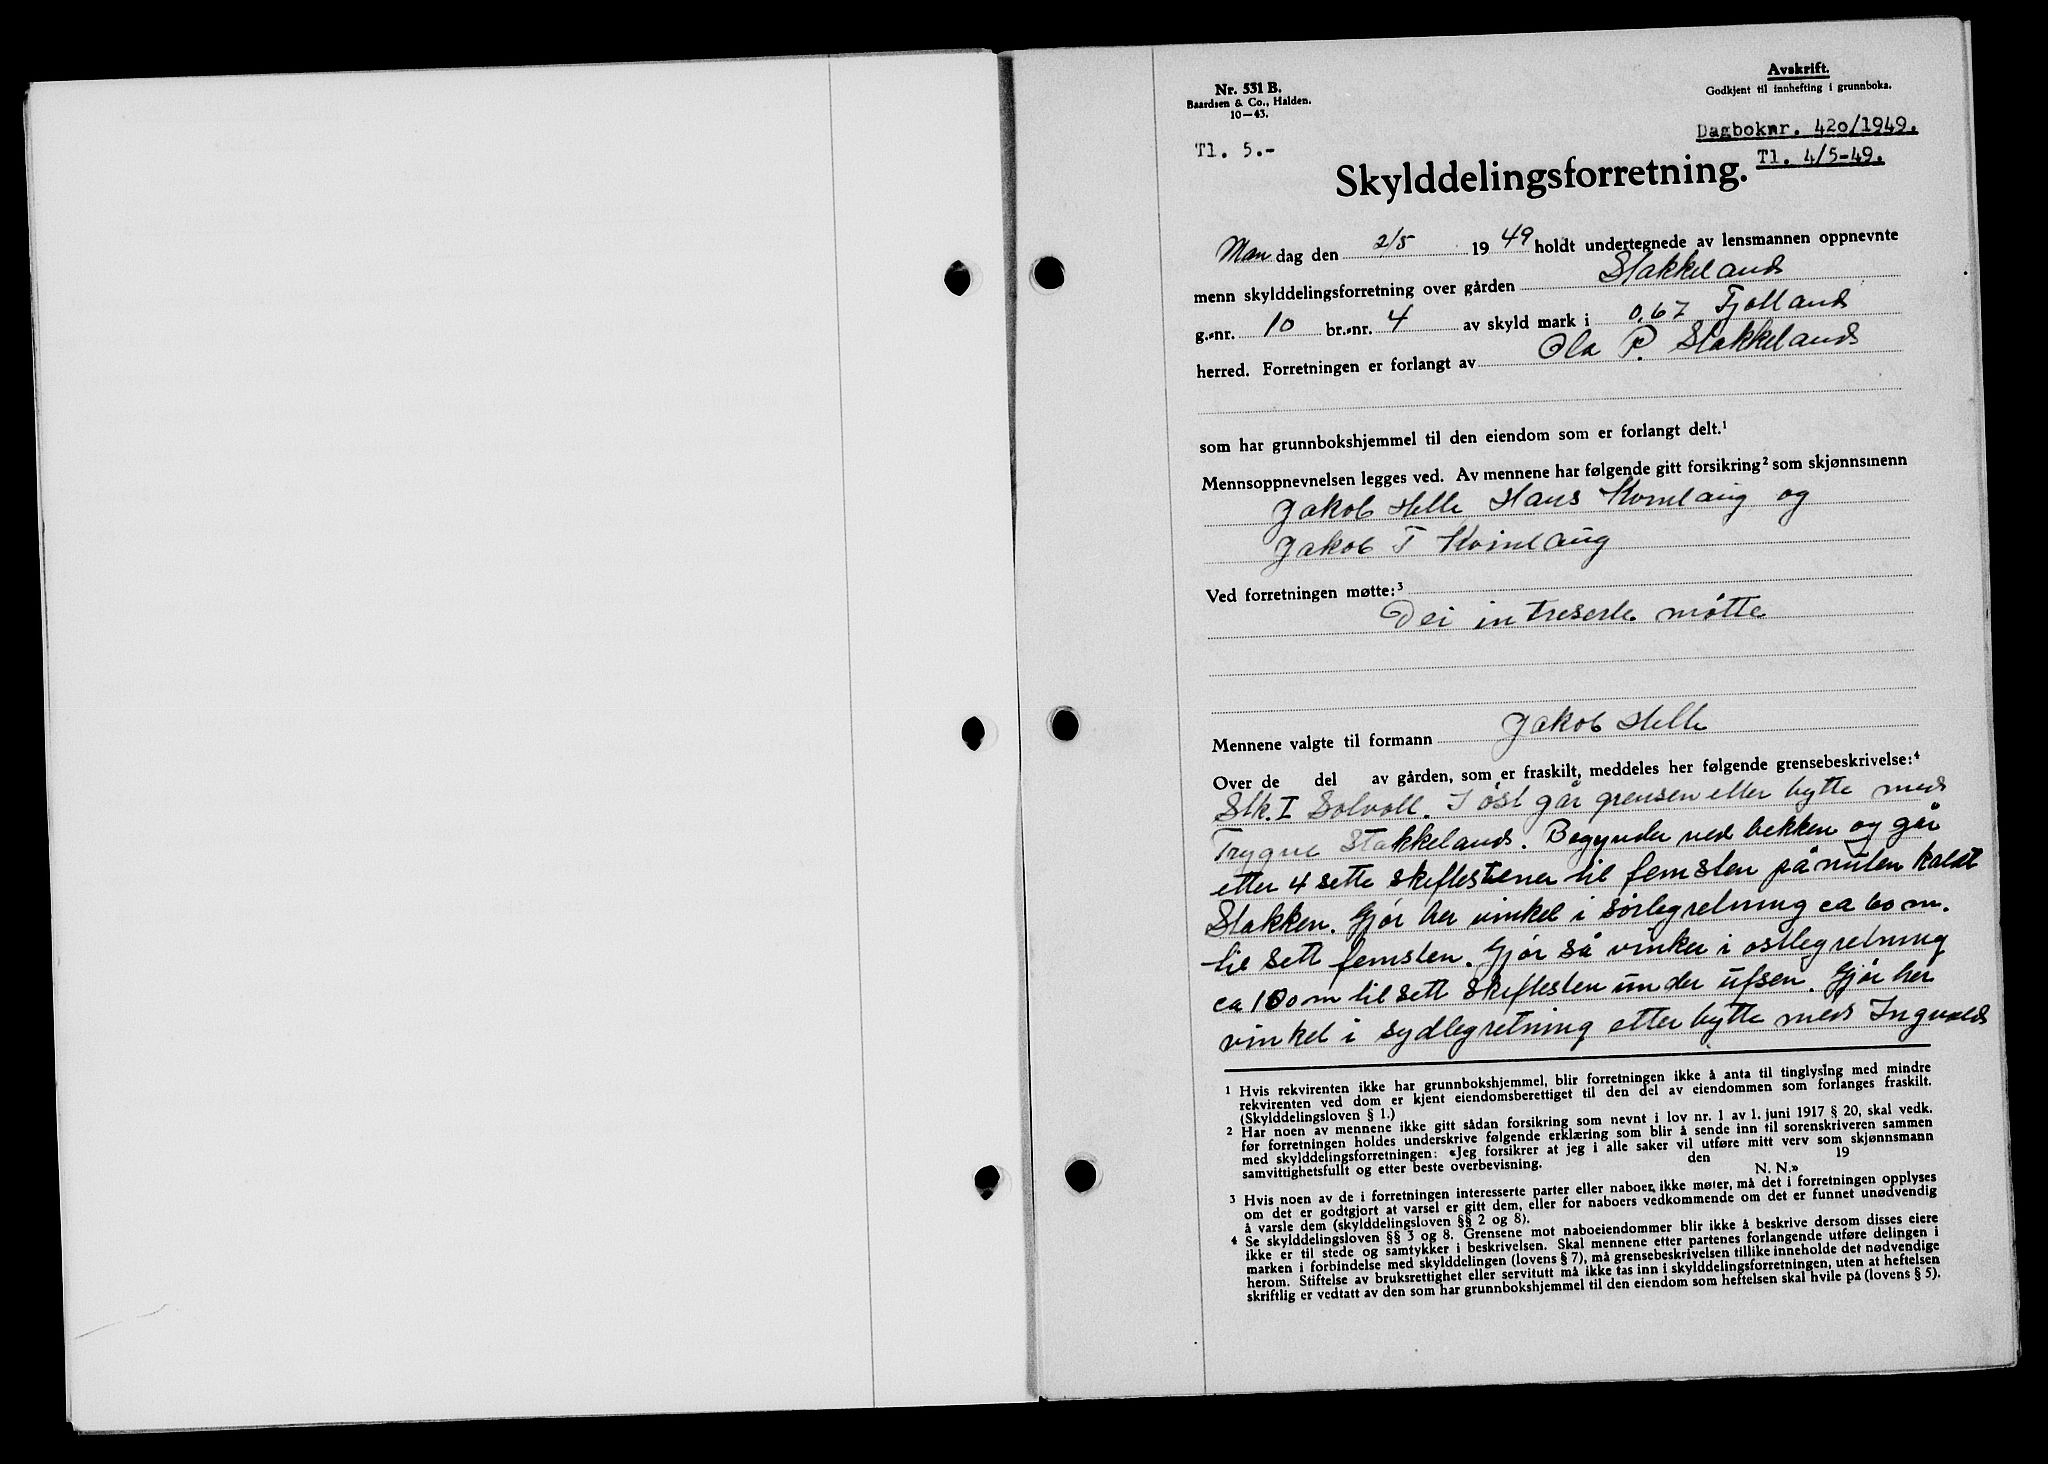 Nr. 531 B.
Baardsen & Co., Halden.
10—43.
Tl. 5.-
Avskrift.
Godkjent til innhefting i grunnboka.
Dagboknr. 420/1949.
Tl. 4/5-49.
Skylddelingsforretning.
Man dag den 2/5 19 49 holdt undertegnede av lensmannen oppnevnte
menn skylddelingsforretning over gården Stakkeland
g.-nr. 10 br.-nr. 4 av skyld mark i 0,67 Fjotland
herred. Forretningen er forlangt av Ola P. Stakkeland
som har grunnbokshjemmel til den eiendom som er forlangt delt.¹
Mennsoppnevnelsen legges ved. Av mennene har følgende gitt forsikring² som skjønnsmenn
Jakob Helle Hans Kvinlaug og
Jakob T Kvinlaug
Ved forretningen møtte:³
Dei intreserte møtte
Mennene valgte til formann Jakob Helle
Over de del av gården, som er fraskilt, meddeles her følgende grensebeskrivelse:⁴
Stk. I Solvoll. I øst går grensen etter bytte med
Trygve Stakkeland. Begynder ved bekken og går
etter 4 sette skiftestener til femsten på nuten kaldt
Stakken. Gjør her vinkel i sørlegretning ca 60 m.
til sett femsten. Gjør så vinkel i ostlegretning
ca 100 m til sett skiftesten under ufsen. Gjør her
vinkel i sydlegretning etter bytte med Ingvald
¹ Hvis rekvirenten ikke har grunnbokshjemmel, blir forretningen ikke å anta til tinglysing med mindre
rekvirenten ved dom er kjent eiendomsberettiget til den del av eiendommen som forlanges fraskilt.
(Skylddelingsloven § 1.)
² Har noen av mennene ikke gitt sådan forsikring som nevnt i lov nr. 1 av 1. juni 1917 § 20, skal vedk.
før forretningen holdes underskrive følgende erklæring som blir å sende inn til sorenskriveren sammen
med skylddelingsforretningen: «Jeg forsikrer at jeg i alle saker vil utføre mitt verv som skjønnsmann
samvittighetsfullt og etter beste overbevisning. den 19
N. N.»
³ Hvis noen av de i forretningen interesserte parter eller naboer, ikke møter, må det i forretningen opplyses
om det er godtgjort at varsel er gitt dem, eller for naboers vedkommende om det er funnet unødvendig
å varsle dem (skylddelingsloven §§ 2 og 8).
⁴ Se skylddelingsloven §§ 3 og 8. Grensene mot naboeiendommer blir ikke å beskrive dersom disses eiere
ikke er til stede og samtykker i beskrivelsen. Skal mennene etter partenes forlangende utføre delingen i
marken i forbindelse med skylddelingen (lovens § 7), må grensebeskrivelsen tillike inneholde det nødvendige
herom. Stiftelse av bruksrettighet eller servitutt må ikke tas inn i skylddelingsforretningen, uten at heftelsen
skriftlig er vedtatt av den som har grunnbokshjemmel til den eiendom som heftelsen skal hvile på (lovens § 5).